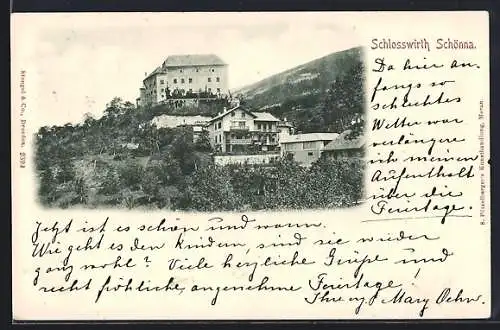 Schlosswirth Schönna.
Da hier an-
fangs so
schlechtes
Wetter war
verlängere
ich meinen
Aufenthalt
über die
Feiertage.
Jetzt ist es schön und warm.
Wie geht es den Kindern, sind sie wieder
ganz wohl? Viele herzliche Grüße und
recht fröhliche, angenehme Feiertage!
Ihre Mary
Stengel & Co., Dresden. 2593
S. Pötzelberger's Kunsthandlung, Meran.